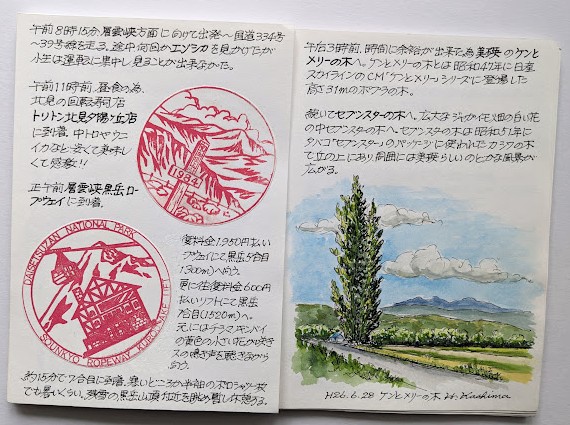 午前8時15分層雲峡方面に向けて出発～国道334号
～39号線を走る。途中何回かエゾシカを見かけたが
小生は運転に集中し見ることが出来なかった。
午前11時前、昼食の為、
北見の回転寿司店
トリトン北見夕陽ヶ丘店
に到着。中トロやウニ
イカなど安くて美味し
くて感激!!
正午前層雲峡黒岳ロ
ープウェイに到着。
1984m
DAISETSUZAN NATIONAL PARK
SOUNKYO ROPEWAY KURODAKE
復料金1,950円払い
ロープウェイにて黒岳5合目
(1300m)へ向う。
更に往復料金600円
払いリフトにて黒岳
7合目(1520m)へ。
の黄色の小さい花が咲き
の鳴き声を聴きながら
向う。
約15分で7合目に到着。寒いどころか半袖のポロシャツ一枚
でも暑いくらい。残雪の黒岳山頂付近を眺め暫し休憩する。
午后3時前、時間に余裕が出来た為美瑛のケンと
メリーの木へ。ケンとメリーの木とは昭和47年に日産
スカイラインのCM「ケンとメリー」シリーズに登場した
高さ31mのポプラの木。
続いてセブンスターの木へ。広大なジャガイモ畑の白い花
の中セブンスターの木へ。セブンスターの木は昭和51年に
タバコ「セブンスター」のパッケージに使われたカシワの木
で丘の上にあり周囲には美瑛らしいのどかな風景が
広がる。
H26.6.28 ケンとメリーの木 H. Kashima